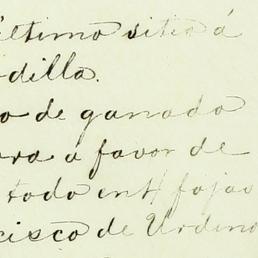 último sitio á
dilla.
o de ganado
ra a favor de
todo en 4 fojas
cisco de Urdino